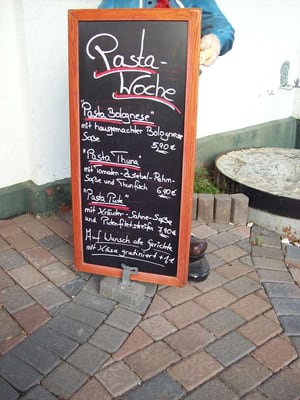 Pasta-
Woche
"Pasta Bolognese"
mit hausgemachter Bolognese
Soße 5,90€
"Pasta Thuna"
mit Tomaten-Zwiebel-Rahm-
Soße und Thunfisch 6,90€
"Pasta Pute"
mit Kräuter-Sahne-Soße
und Putenfiletstreifen 7,90€
Auf Wunsch alle Gerichte
mit Käse gratiniert + 1,-€